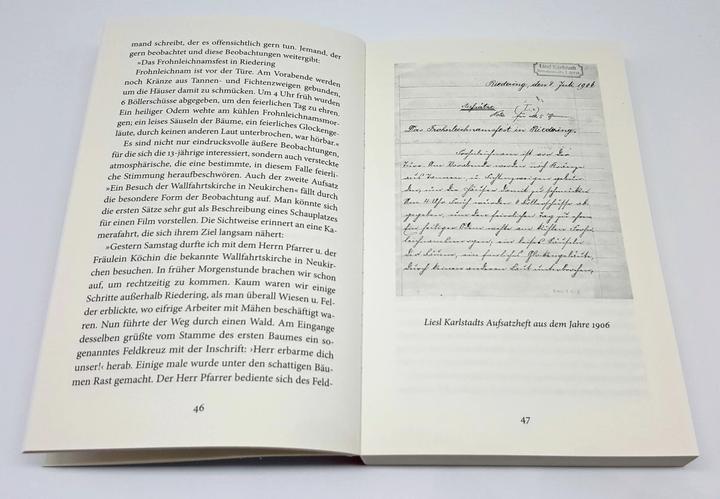 mand schreibt, der es offensichtlich gern tun. Jemand, der
gern beobachtet und diese Beobachtungen weitergibt:
»Das Frohnleichnamsfest in Riedering
Frohnleichnam ist vor der Türe. Am Vorabende werden
noch Kränze aus Tannen- und Fichtenzweigen gebunden,
um die Häuser damit zu schmücken. Um 4 Uhr früh wurden
6 Böllerschüsse abgegeben, um den feierlichen Tag zu ehren.
Ein heiliger Odem wehte am kühlen Frohnleichnamsmor-
gen; ein leises Säuseln der Bäume, ein feierliches Glockenge-
läute, durch keinen andern Laut unterbrochen, war hörbar.«
Es sind nicht nur eindrucksvolle äußere Beobachtungen,
für die sich die 13-jährige interessiert, sondern auch versteckte
atmosphärische, die eine bestimmte, in diesem Falle feierli-
che Stimmung heraufbeschwören. Auch der zweite Aufsatz
»Ein Besuch der Wallfahrtskirche in Neukirchen« fällt durch
die besondere Form der Beobachtung auf. Man könnte sich
die ersten Sätze sehr gut als Beschreibung eines Schauplatzes
für einen Film vorstellen. Die Sichtweise erinnert an eine Ka-
merafahrt, die sich ihrem Ziel langsam nähert:
»Gestern Samstag durfte ich mit dem Herrn Pfarrer u. der
Fräulein Köchin die bekannte Wallfahrtskirche in Neukir-
chen besuchen. In früher Morgenstunde brachen wir schon
auf, um rechtzeitig zu kommen. Kaum waren wir einige
Schritte außerhalb Riedering, als man überall Wiesen u. Fel-
der erblickte, wo eifrige Arbeiter mit Mähen beschäftigt wa-
ren. Nun führte der Weg durch einen Wald. Am Eingange
desselben grüßte vom Stamme des ersten Baumes ein so-
genanntes Feldkreuz mit der Inschrift: ›Herr erbarme dich
unser!‹ herab. Einige male wurde unter den schattigen Bäu-
men Rast gemacht. Der Herr Pfarrer bediente sich des Feld-
46
Liesl Karlstadt
Riedering, den 8. Juli 1906
Aufsätze
Das Frohnleichnamsfest in Riedering.
Frohnleichnam ist vor der
Türe. Am Vorabende werden noch Kränze
aus Tannen- u. Fichtenzweigen gebun-
den, um die Häuser damit zu schmücken.
Um 4 Uhr früh wurden 6 Böllerschüsse ab-
gegeben, um den feierlichen Tag zu ehren.
Ein heiliger Odem wehte am kühlen Frohn-
leichnamsmorgen, ein leises Säuseln
der Bäume, ein feierliches Glockengeläute,
durch keinen anderen Laut unterbrochen,
Liesl Karlstadts Aufsatzheft aus dem Jahre 1906
47